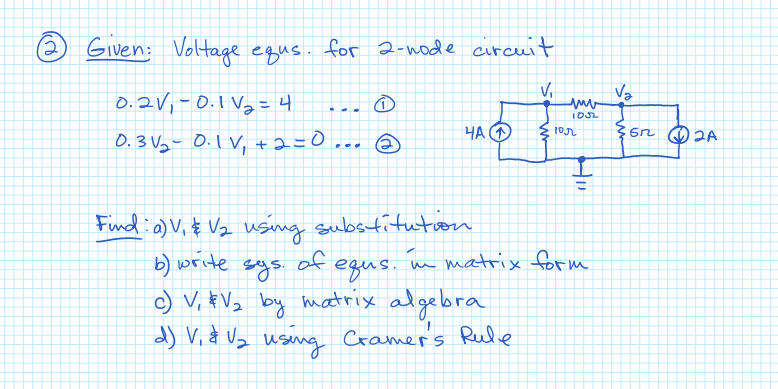 ② Given: Voltage equs. for 2-node circuit
0.2V₁ - 0.1V₂ = 4 ... ①
0.3V₂ - 0.1V₁ + 2 = 0 ... ②
V₁ V₂
10Ω
4A 10Ω 5Ω 2A
Find: a) V₁ & V₂ using substitution
b) write sys. of equs. in matrix form
c) V₁ & V₂ by matrix algebra
d) V₁ & V₂ using Cramer's Rule